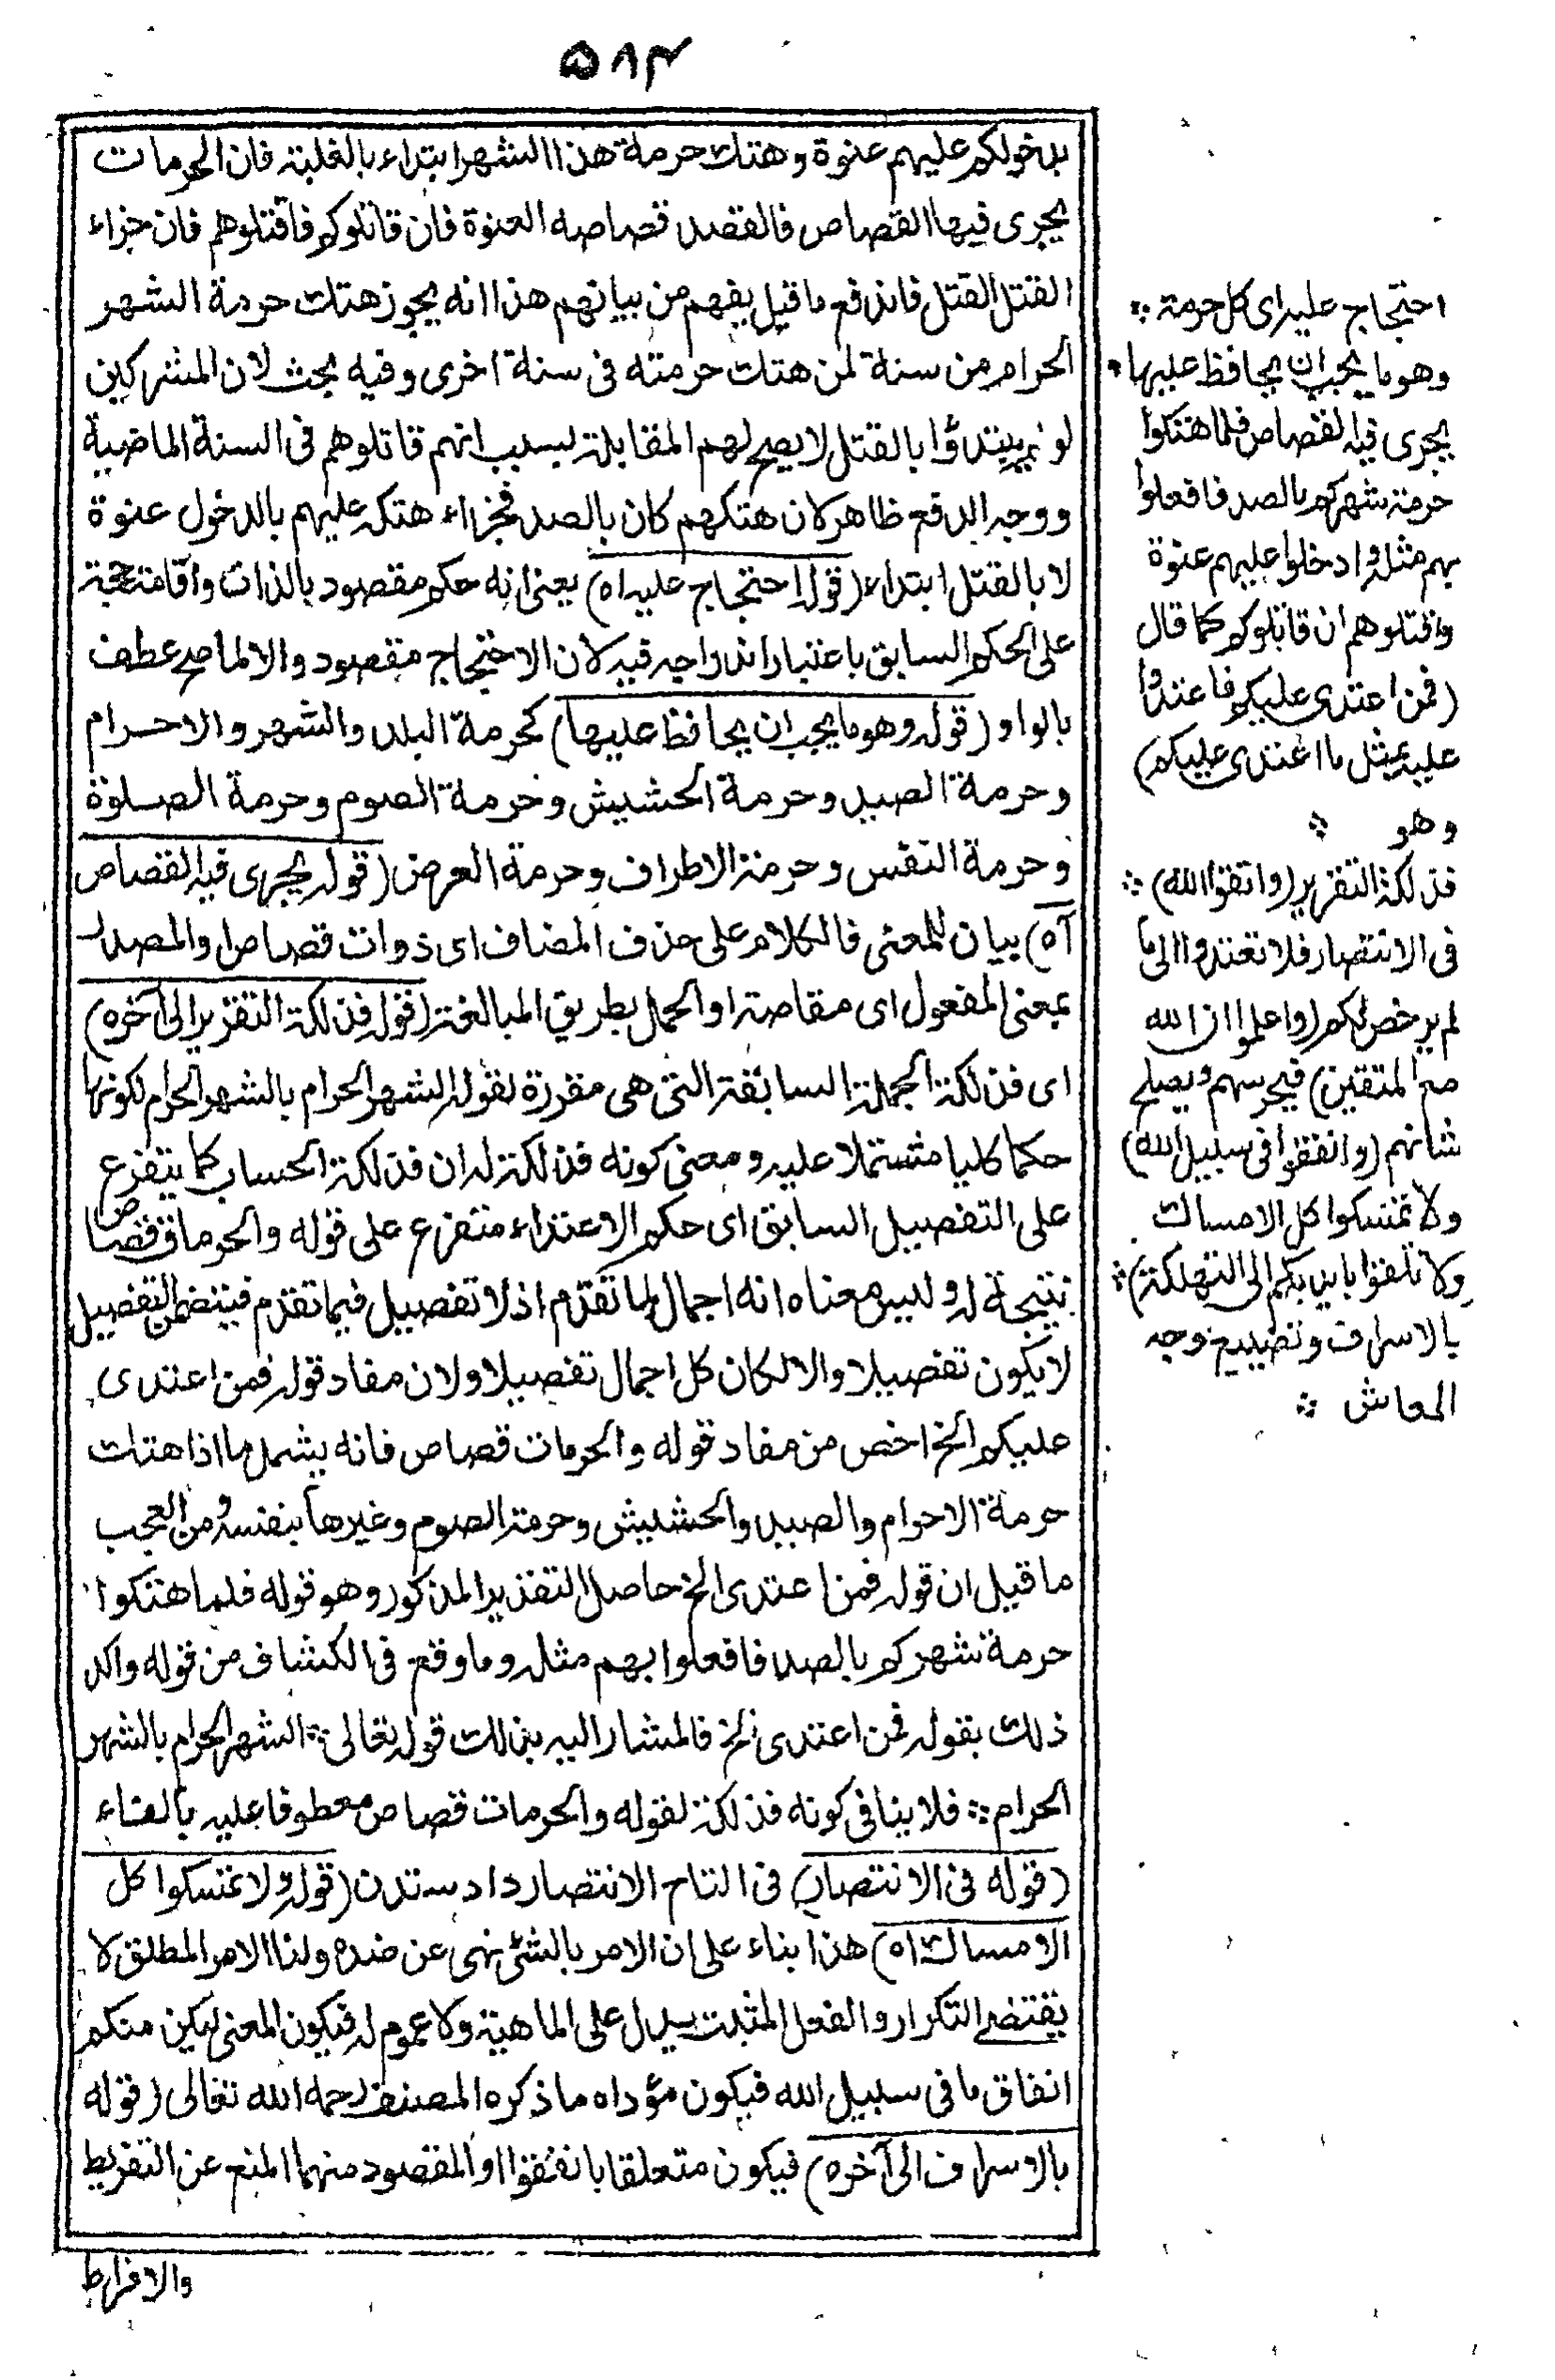 ۵۸۴
بدخولكم عليهم عنوة وهتك حرمة هذا الشهر ابتداء بالغلبة فان الحرمات
يجرى فيها القصاص فالقصد قصاصه العنوة فان قاتلوكم فاقتلوهم فان جزاء
القتل القتل فاندفع ما قيل يفهم من بيانهم هذا انه يجوز هتك حرمة الشهر
الحرام من سنة لمن هتك حرمته فى سنة اخرى وفيه بحث لان المشركين
لو لم يبتدؤا بالقتل لا يصح لهم المقابلة بسبب انهم قاتلوهم فى السنة الماضية
ووجه الدفع ظاهر لان هتكهم كان بالصد فجزاء هتكه عليهم بالدخول عنوة
لا بالقتل ابتداء (قوله احتجاج عليه اه) يعنى انه حكم مقصود بالذات واقامة حجة
على الحكم السابق باعتبار اندراجه فيه لان الاحتجاج مقصود والا لما صح عطف
بالواو (قوله وهو ما يجب ان يحافظ عليها) كحرمة البلد والشهر والاحرام
وحرمة الصيد وحرمة الحشيش وحرمة الصوم وحرمة الصلوة
وحرمة النفس وحرمة الاطراف وحرمة العرض (قوله يجرى فيه القصاص
آه) بيان للمعنى فالكلام على حذف المضاف اى ذوات قصاص او المصدر
بمعنى المفعول اى مقاصة او الحمل بطريق المبالغة (قوله فذلكة التقرير الى آخره)
اى فذلكة الجملة السابقة التى هى مقررة لقوله الشهر الحرام بالشهر الحرام لكونها
حكما كليا مشتملا عليه ومعنى كونه فذلكة له ان فذلكة الحساب كما يتفرع
على التفصيل السابق اى حكم الاعتداء متفرع على قوله والحرمات قصاص
نتيجة له وليس معناه انه اجمال لما تقدم اذ لا تفصيل فيما تقدم فيتضمن التفصيل
لا يكون تفصيلا والا لكان كل اجمال تفصيلا ولان مفاد قوله فمن اعتدى
عليكم الخ اخص من مفاد قوله والحرمات قصاص فانه يشمل ما اذا هتك
حرمة الاحرام والصيد والحشيش وحرمة الصوم وغيرها بنفسه ومن العجب
ما قيل ان قوله فمن اعتدى الخ حاصل التقدير المذكور وهو قوله فلما هتكوا
حرمة شهركم بالصد فافعلوا بهم مثله وما وقع فى الكشاف من قوله واكد
ذلك بقوله فمن اعتدى الخ فالمشار اليه بذلك قوله تعالى ؞ الشهر الحرام بالشهر
الحرام ؞ فلا ينافى كونه فذلكة لقوله والحرمات قصاص معطوفا عليه بالفاء
(قوله فى الانتصار) فى التاج الانتصار داد ستدن (قوله ولا تمسكوا كل
الامساك اه) هذا بناء على ان الامر بالشئ نهى عن ضده ولنا الامر المطلق لا
يقتضى التكرار والفعل المثبت يدل على الماهية ولا عموم له فيكون المعنى ليكن منكم
انفاق ما فى سبيل الله فيكون مؤداه ما ذكره المصنف رحمه الله تعالى (قوله
بالاسراف الى آخره) فيكون متعلقا بانفقوا او المقصود منهما المنع عن التفريط
والافراط
احتجاج عليه اى كل حرمة ؞
وهو ما يجب ان يحافظ عليها
يجرى فيه القصاص فلما هتكوا
حرمة شهركم بالصد فافعلوا
بهم مثله وادخلوا عليهم عنوة
واقتلوهم ان قاتلوكم كما قال
(فمن اعتدى عليكم فاعتدوا
عليه بمثل ما اعتدى عليكم)
وهو ؞
فذلكة التقرير (واتقوا الله) ؞
فى الانتصار فلا تعتدوا الى ما
لم يرخص لكم (واعلموا ان الله
مع المتقين) فيحرسهم ويصلح
شانهم (وانفقوا فى سبيل الله)
ولا تمسكوا كل الامساك
(ولا تلقوا بايديكم الى التهلكة) ؞
بالاسراف وتضييع وجه
المعاش ؞